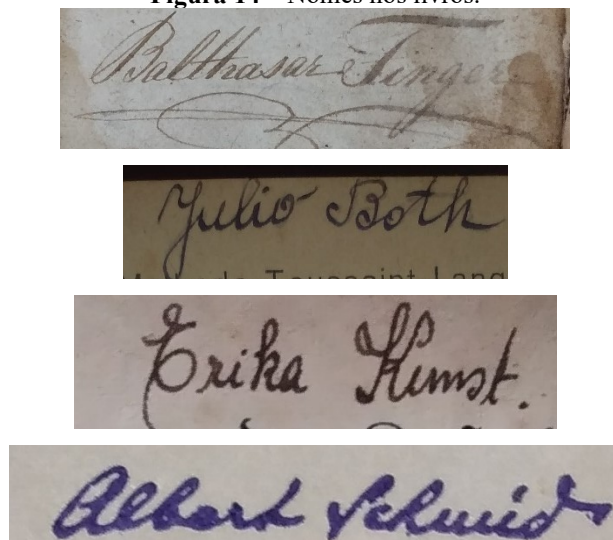 Figura 14 – Nomes nos livros.
Balthasar Finger
Julio Both
Toussaint Lang
Erika Kunst.
Albert Schmidt